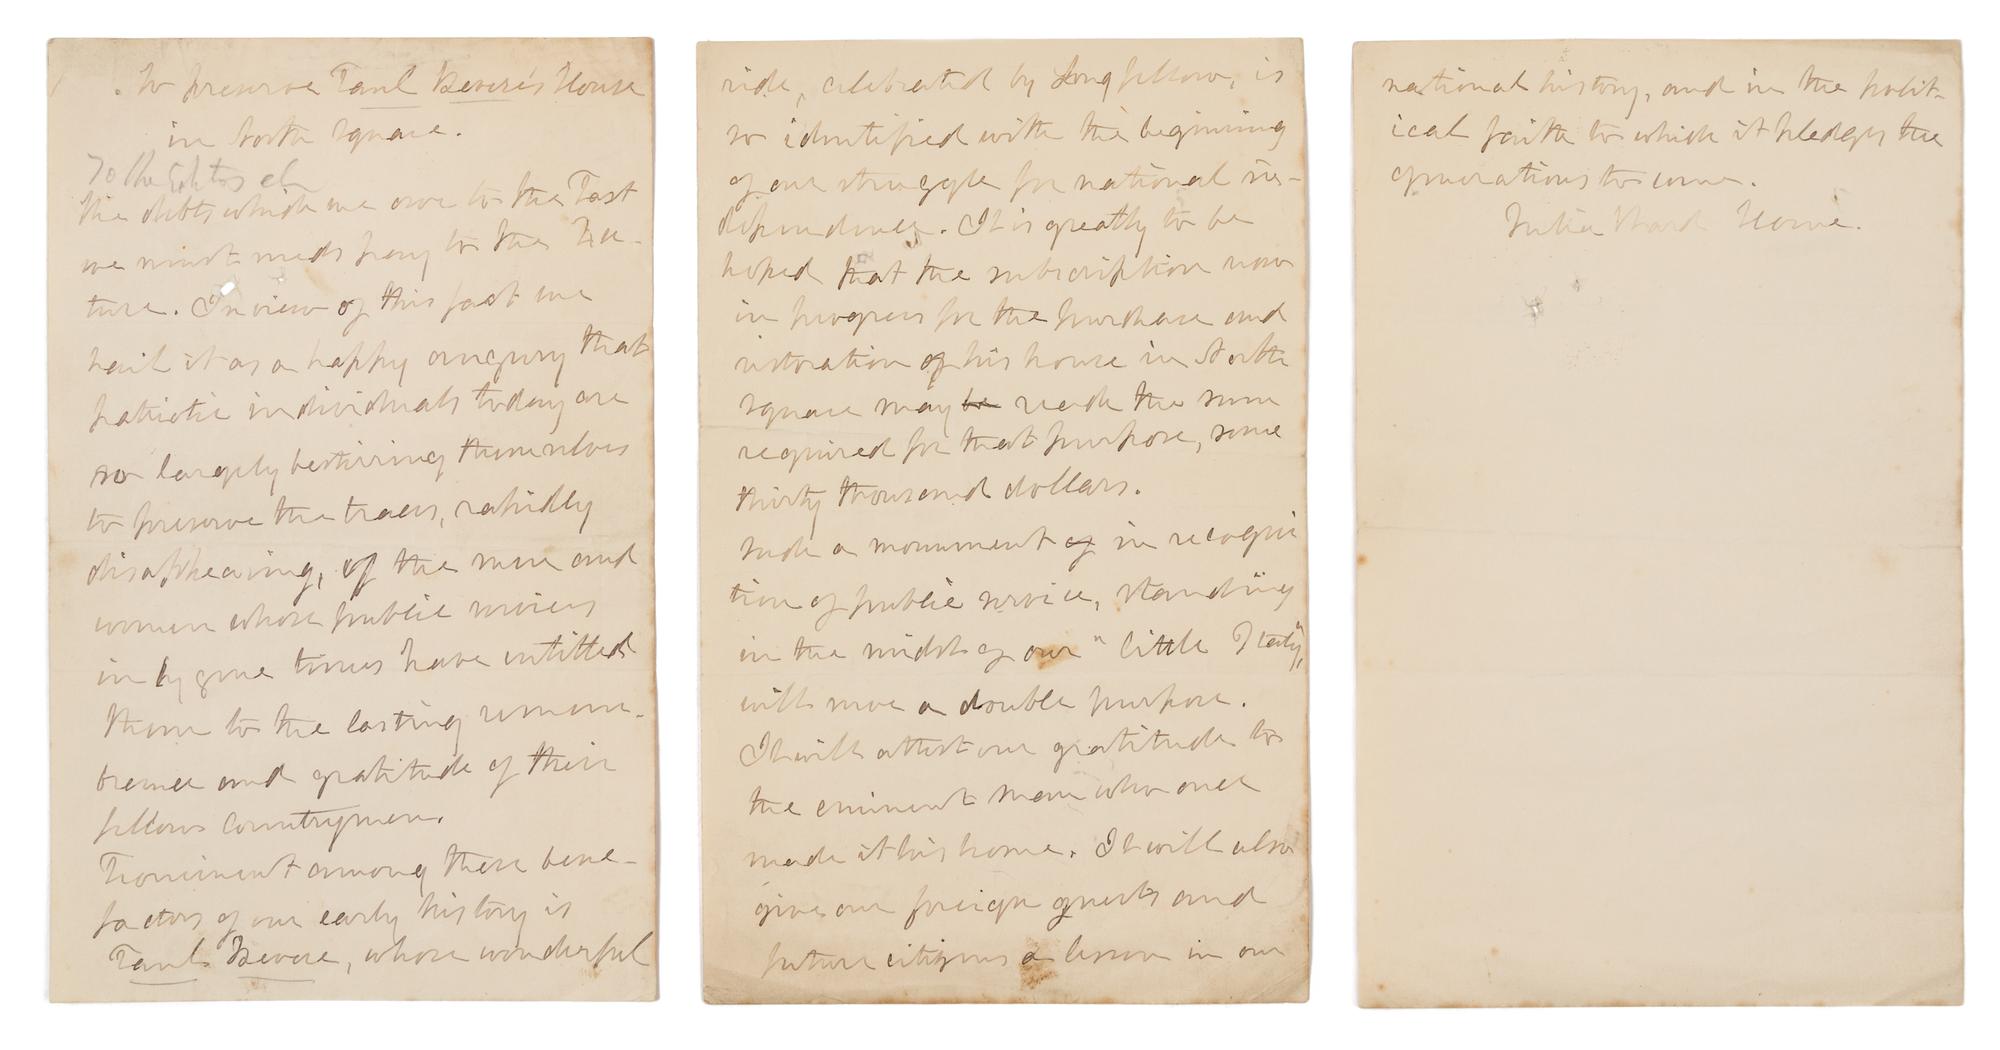 To preserve Paul Revere's House
in North Square.
To the Editors
The debts which we owe to the Past
we must needs pay to the Fu-
ture. In view of this fact we
hail it as a happy augury that
patriotic individuals today are
so largely bestirring themselves
to preserve the traces, rapidly
disappearing, of the men and
women whose public services
in by gone times have entitled
them to the lasting remem-
brance and gratitude of their
fellow countrymen.
Prominent among these bene-
factors of our early history is
Paul Revere, whose wonderful
ride, celebrated by Longfellow, is
so identified with the beginning
of our struggle for national in-
dependence. It is greatly to be
hoped that the subscription now
in progress for the purchase and
restoration of his house in North
Square may be reach the sum
required for that purpose, some
thirty thousand dollars.
Such a monument of in recogni
tion of public service, standing
in the midst of our "little Italy",
will serve a double purpose.
It will attest our gratitude to
the eminent man who once
made it his home. It will also
give our foreign guests and
future citizens a lesson in our
national history, and in the polit-
ical faith to which it pledges the
generations to come.
Julia Ward Howe.